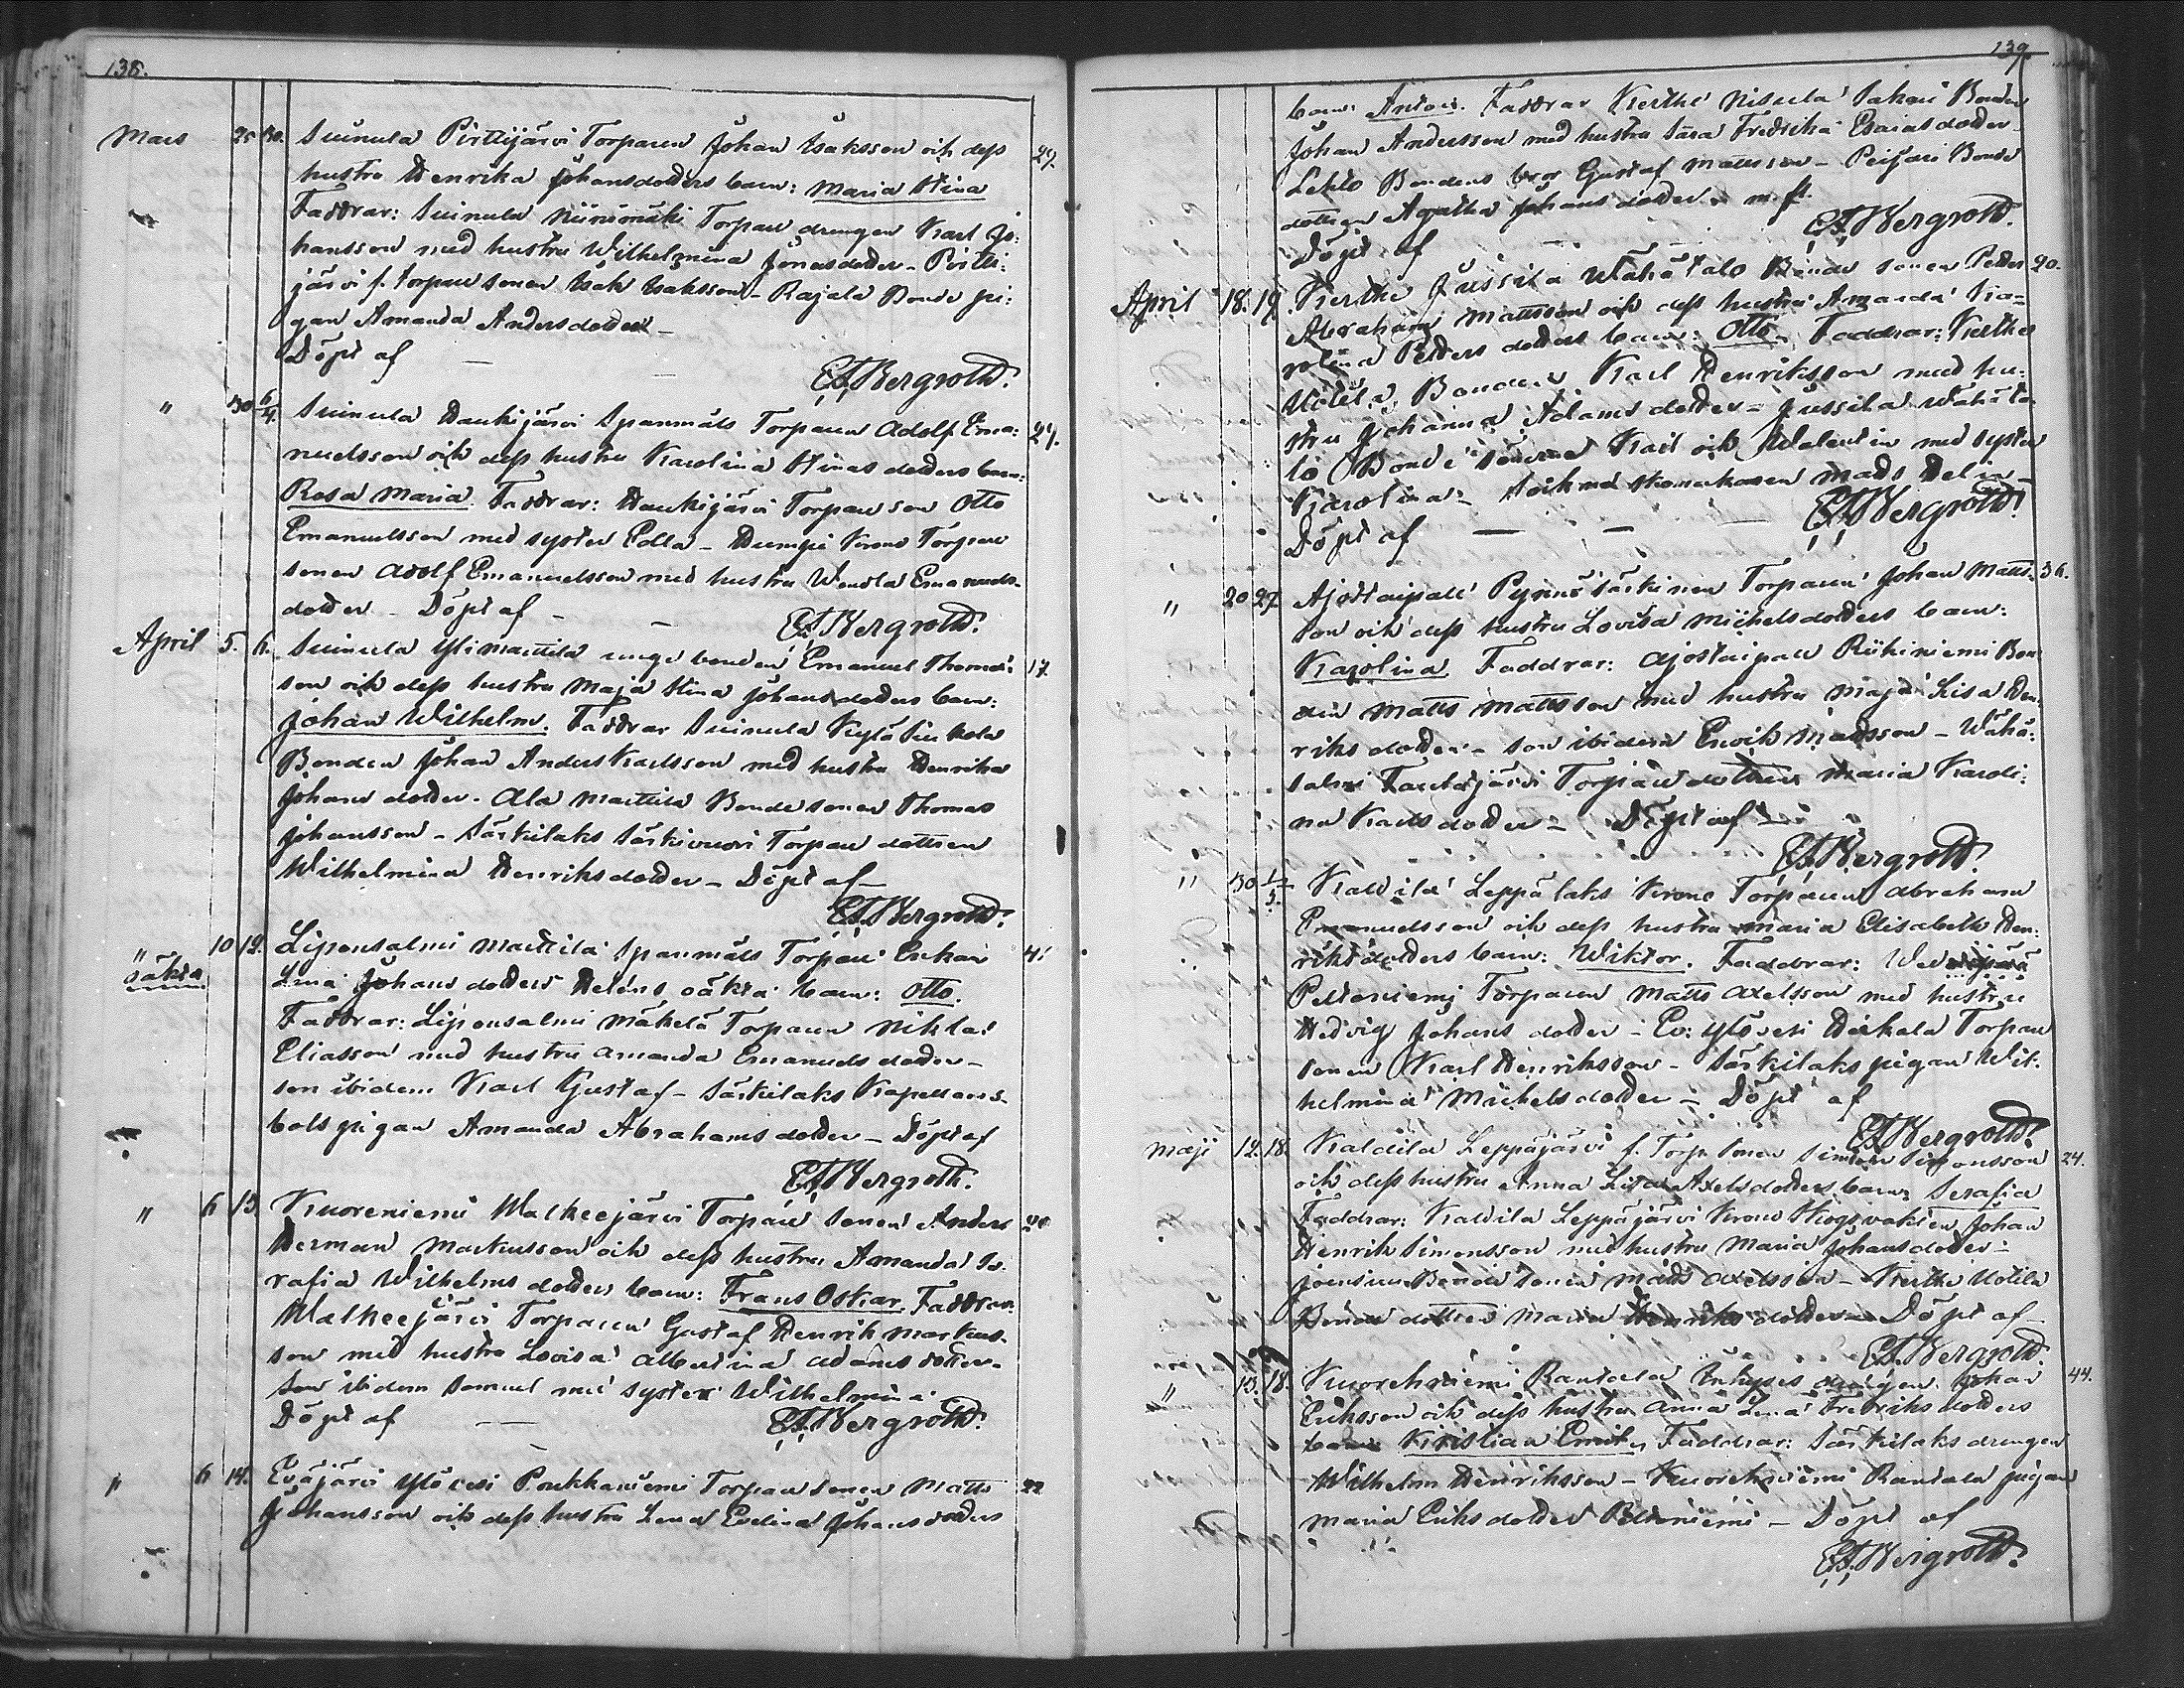 138.
Mars 25 30. Suinula Pirttijärvi Torparen Johan Isaksson och dess 29.
hustru Henrika Johansdotters barn: Maria Stina
Faddrar: Suinula Niinimäki Torpare drengen Karl Jo:
hansson med hustru Wilhelmina Jonasdotter - Pirtti:
järvi f. torpare sonen Isak Isaksson - Rajala Bonde pi:
gan Amanda Andersdotter -
Döpt af — — E.A. Bergroth.
" 30 6/4. Suinula Haukijärvi Spanmåls Torparen Adolf Ema: 27.
nuelsson och dess hustru Karolina Stinas dotters barn:
Rosa Maria. Faddrar: Haukijärvi Torpare son Otto
Emanuelsson med syster Edla - Krono Torpare
sonen Adolf Emanuelsson med hustru Wendla Emanuels-
dotter - Döpt af - — E.A. Bergroth.
April 5. 6. Suinula Ylimattila unge bonden Emanuel Thomas 17.
son och dess hustru Maja Stina Johansdotters barn:
Johan Wilhelm. Faddrar Suinula Kylä
Bonden Johan Anders Karlsson med hustru Henrika
Johans dotter. Ala Mattila Bonde sonen Thomas
Johansson - Särkilaks Särkivuori Torpare dottren
Wilhelmina Henriksdotter - Döpt af -
E.A. Bergroth.
" 10 12. Liponsalmi Mattila Spanmåls Torpare Enkan 41
oäkta Lena Johans dotters oäkta barn: Otto.
Faddrar: Liponsalmi Mäkelä Torparen Niklas
Eliasson med hustru Amanda Emanuels dotter -
son ibidem Karl Gustaf - Särkilaks Kapellans-
bols pigan Amanda Abrahams dotter - Döpt af
E.A. Bergroth.
" 6 13. Kuoreniemi Walkeejärvi Torpare sonen Anders
Herman Markusson och dess hustru Amanda Se:
rafia Wilhelms dotters barn: Frans Oskar. Faddrar:
Walkeejärvi Torparen Gustaf Henrik Markus-
son med hustru Lovisa Albertina Adams dotter -
Son ibidem Samuel med syster Wilhelmina
Döpt af — — E.A. Bergroth.
" 6 14. Eväjärvi Ylövesi Poukkaniemi Torpare sonen Matts 22
Johansson och dess hustru Lena Evelina Johans dotters
139.
barn: Anton. Faddrar Kertte Nisula Sakari Bonden
Johan Andersson med hustru Sara Fredrika Esaias dotter
Lehto Bondens bror Gustaf Mattsson - Bonde
dottren Agatha Johans dotter m. fl.
Döpt af — E.A. Bergroth.
April 18. 19. Kertte Jussila Wähätalo Bonde sonen Petter 20.
Abraham Mattsson och dess hustru Amanda Ka=
rolina Petters dotters barn: Otto. Faddrar: Kertte
Uotila Bonden Karl Henriksson med hu:
stru Johanna Adams dotter - Jussila Wähäta
lo Bonde sönerna Karl och Walentin med syster
Karolina - Mats Helin
Döpt af — — — E.A. Bergroth.
" 20 27. Ajostaipale Pynnö Särkinen Torparen Johan Matts- 36.
son och dess hustru Lovisa Michelsdotters barn:
Karolina. Faddrar: Ajostaipale Riihiniemi Bon
den Matts Mattsson med hustru Maja Lisa Hen
riks dotter - son ibidem Enoch Madsson - Wähä:
salmi Torpare dottren Maria Karoli:
na Karlsdotter - Döpt af —
E.A. Bergroth.
" 30 1/5. Kaivila Leppälaks Krono Torparen Abraham
Emanuelsson och dess hustru Maria Elisabeth Hen:
riksdotters barn: Wiktor. Faddrar:
Peltoniemi Torparen Matts Axelsson med hustru
Hedvig Johans dotter - Ev: Ylövesi Torpare
sonen Karl Henriksson - Särkilaks pigan Wil:
helmina Michelsdotter - Döpt af
E.A. Bergroth.
Maji 12. 18. Kaivila Leppäjärvi f. Torp. sonen Simon Simonsson 24.
och dess hustru Anna Lisa Axels dotters barn: Serafia
Faddrar: Kaivila Leppäjärvi Krono Skogsvakten Johan
Henrik Simonsson med hustru Maria Johans dotter -
Bonde sonen Mats Axelsson - Kertte Uotila
Bonde dottren Maria Henriks dotter - Döpt af -
E.A. Bergroth.
" 13. 18. Kuorehniemi Rantala Inhyses drengen Johan 44.
Eriksson och dess hustru Anna Lena Fredriks dotters
barn Kristian Emil. Faddrar: Särkilaks drengen
Wilhelm Henriksson - Kuorehniemi Rantala pigan
Maria Eriks dotter Peltoniemi - Döpt af
E.A. Bergroth.